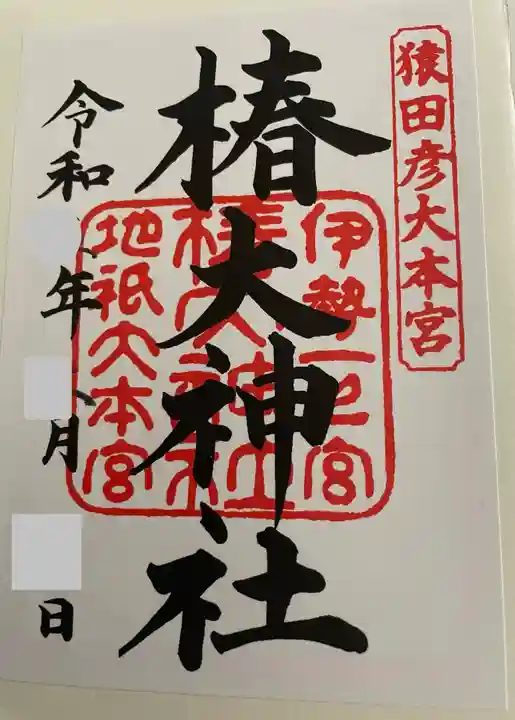 猿田彦大本宮
椿大神社
伊勢一之宮
椿大神社
地祇大本宮
令和 年 月 日